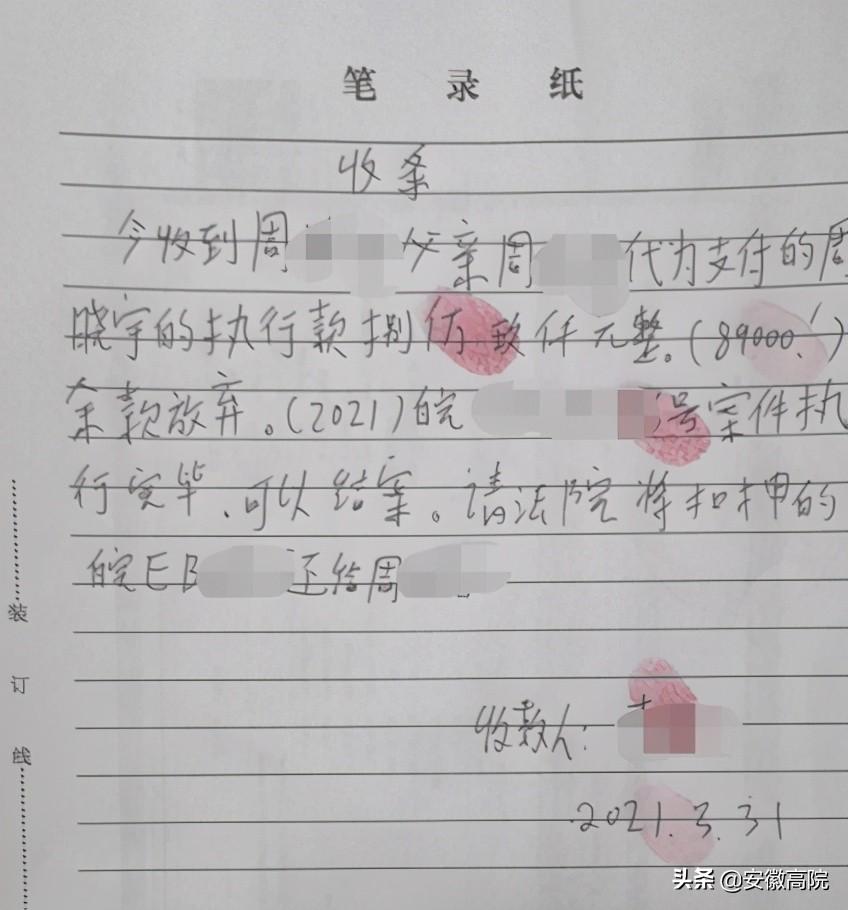 笔录纸
收条
今收到周 父亲周 代为支付的周
晓宇的执行款捌仿玖仟元整。(89000.)
余款放弃。(2021)皖 号案件执
行完毕,可以结案。请法院将扣押的
皖EB 还给周
收款人:
2021.3.31
装订线
头条 @安徽高院